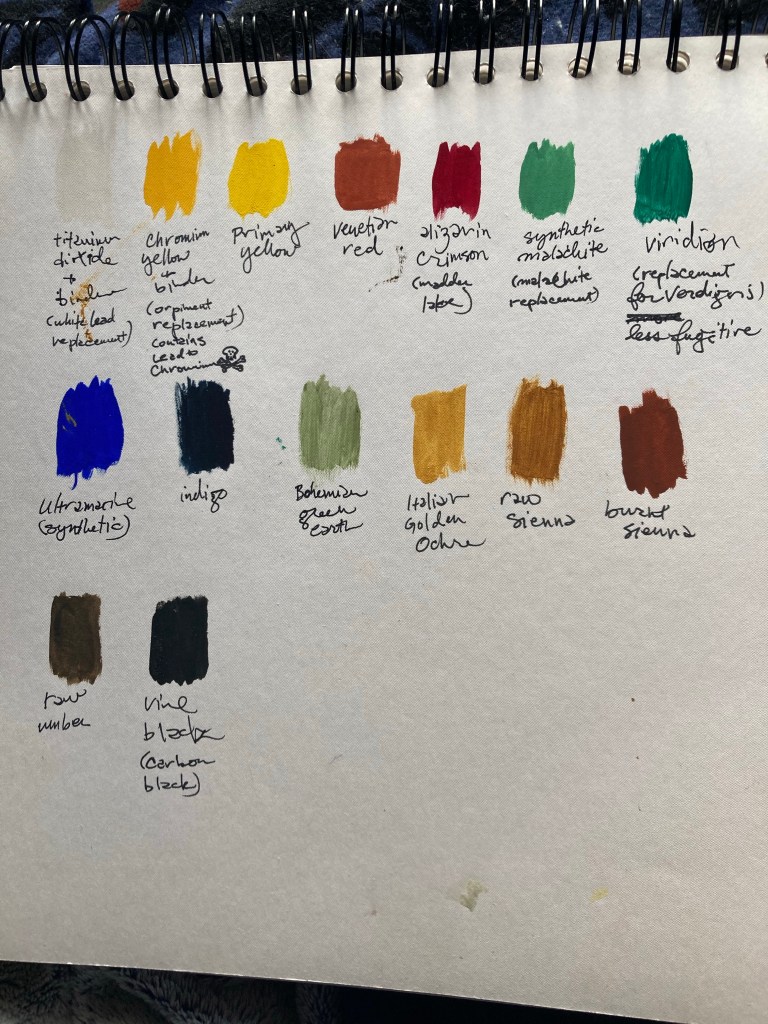 titanium
dioxide
+
binder
(white lead
replacement)
chromium
yellow
+
binder
(orpiment
replacement)
contains
lead +
chromium
primary
yellow
venetian
red
alizarin
crimson
(madder
lake)
synthetic
malachite
(malachite
replacement)
viridian
(replacement
for verdigris)
less fugitive
ultramarine
(synthetic)
indigo
Bohemian
green
earth
Italian
Golden
Ochre
raw
sienna
burnt
sienna
raw
umber
vine
black
(carbon
black)